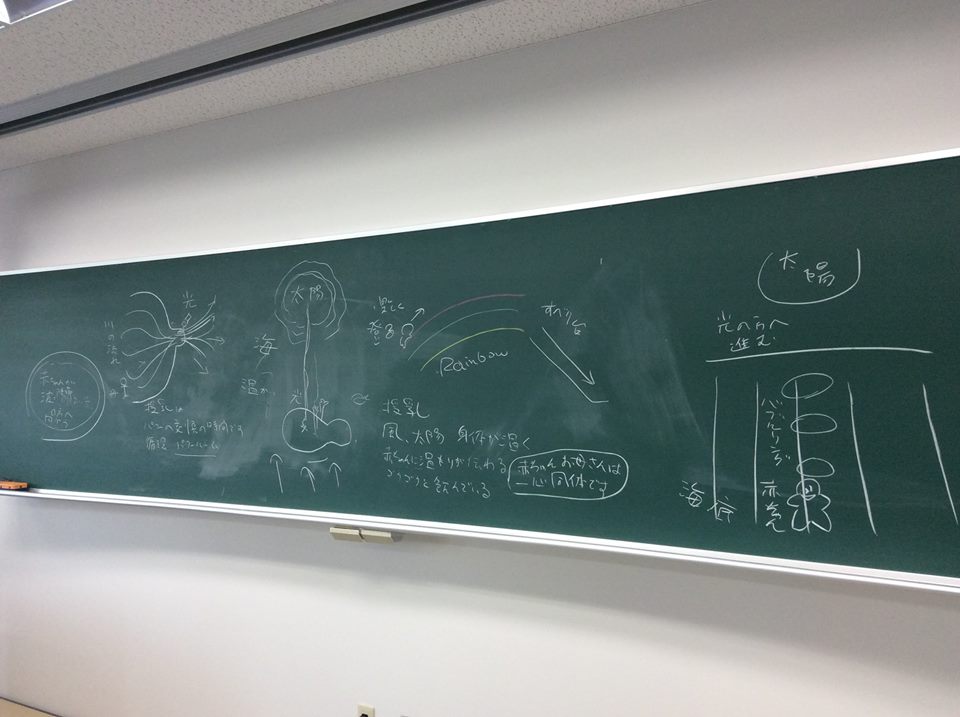 光
川の流れ
赤ちゃんが
授乳は
循環 パワールーム
太陽
海
温か
光
楽しく
登る
Rainbow
すべり台
授乳
風、太陽 身体が温く
赤ちゃんに温もりが伝わる
ゴクゴクと飲んでいる
赤ちゃんお母さんは
一心同体です
太陽
光の方へ
進む
バブルリング
赤ちゃん
海底